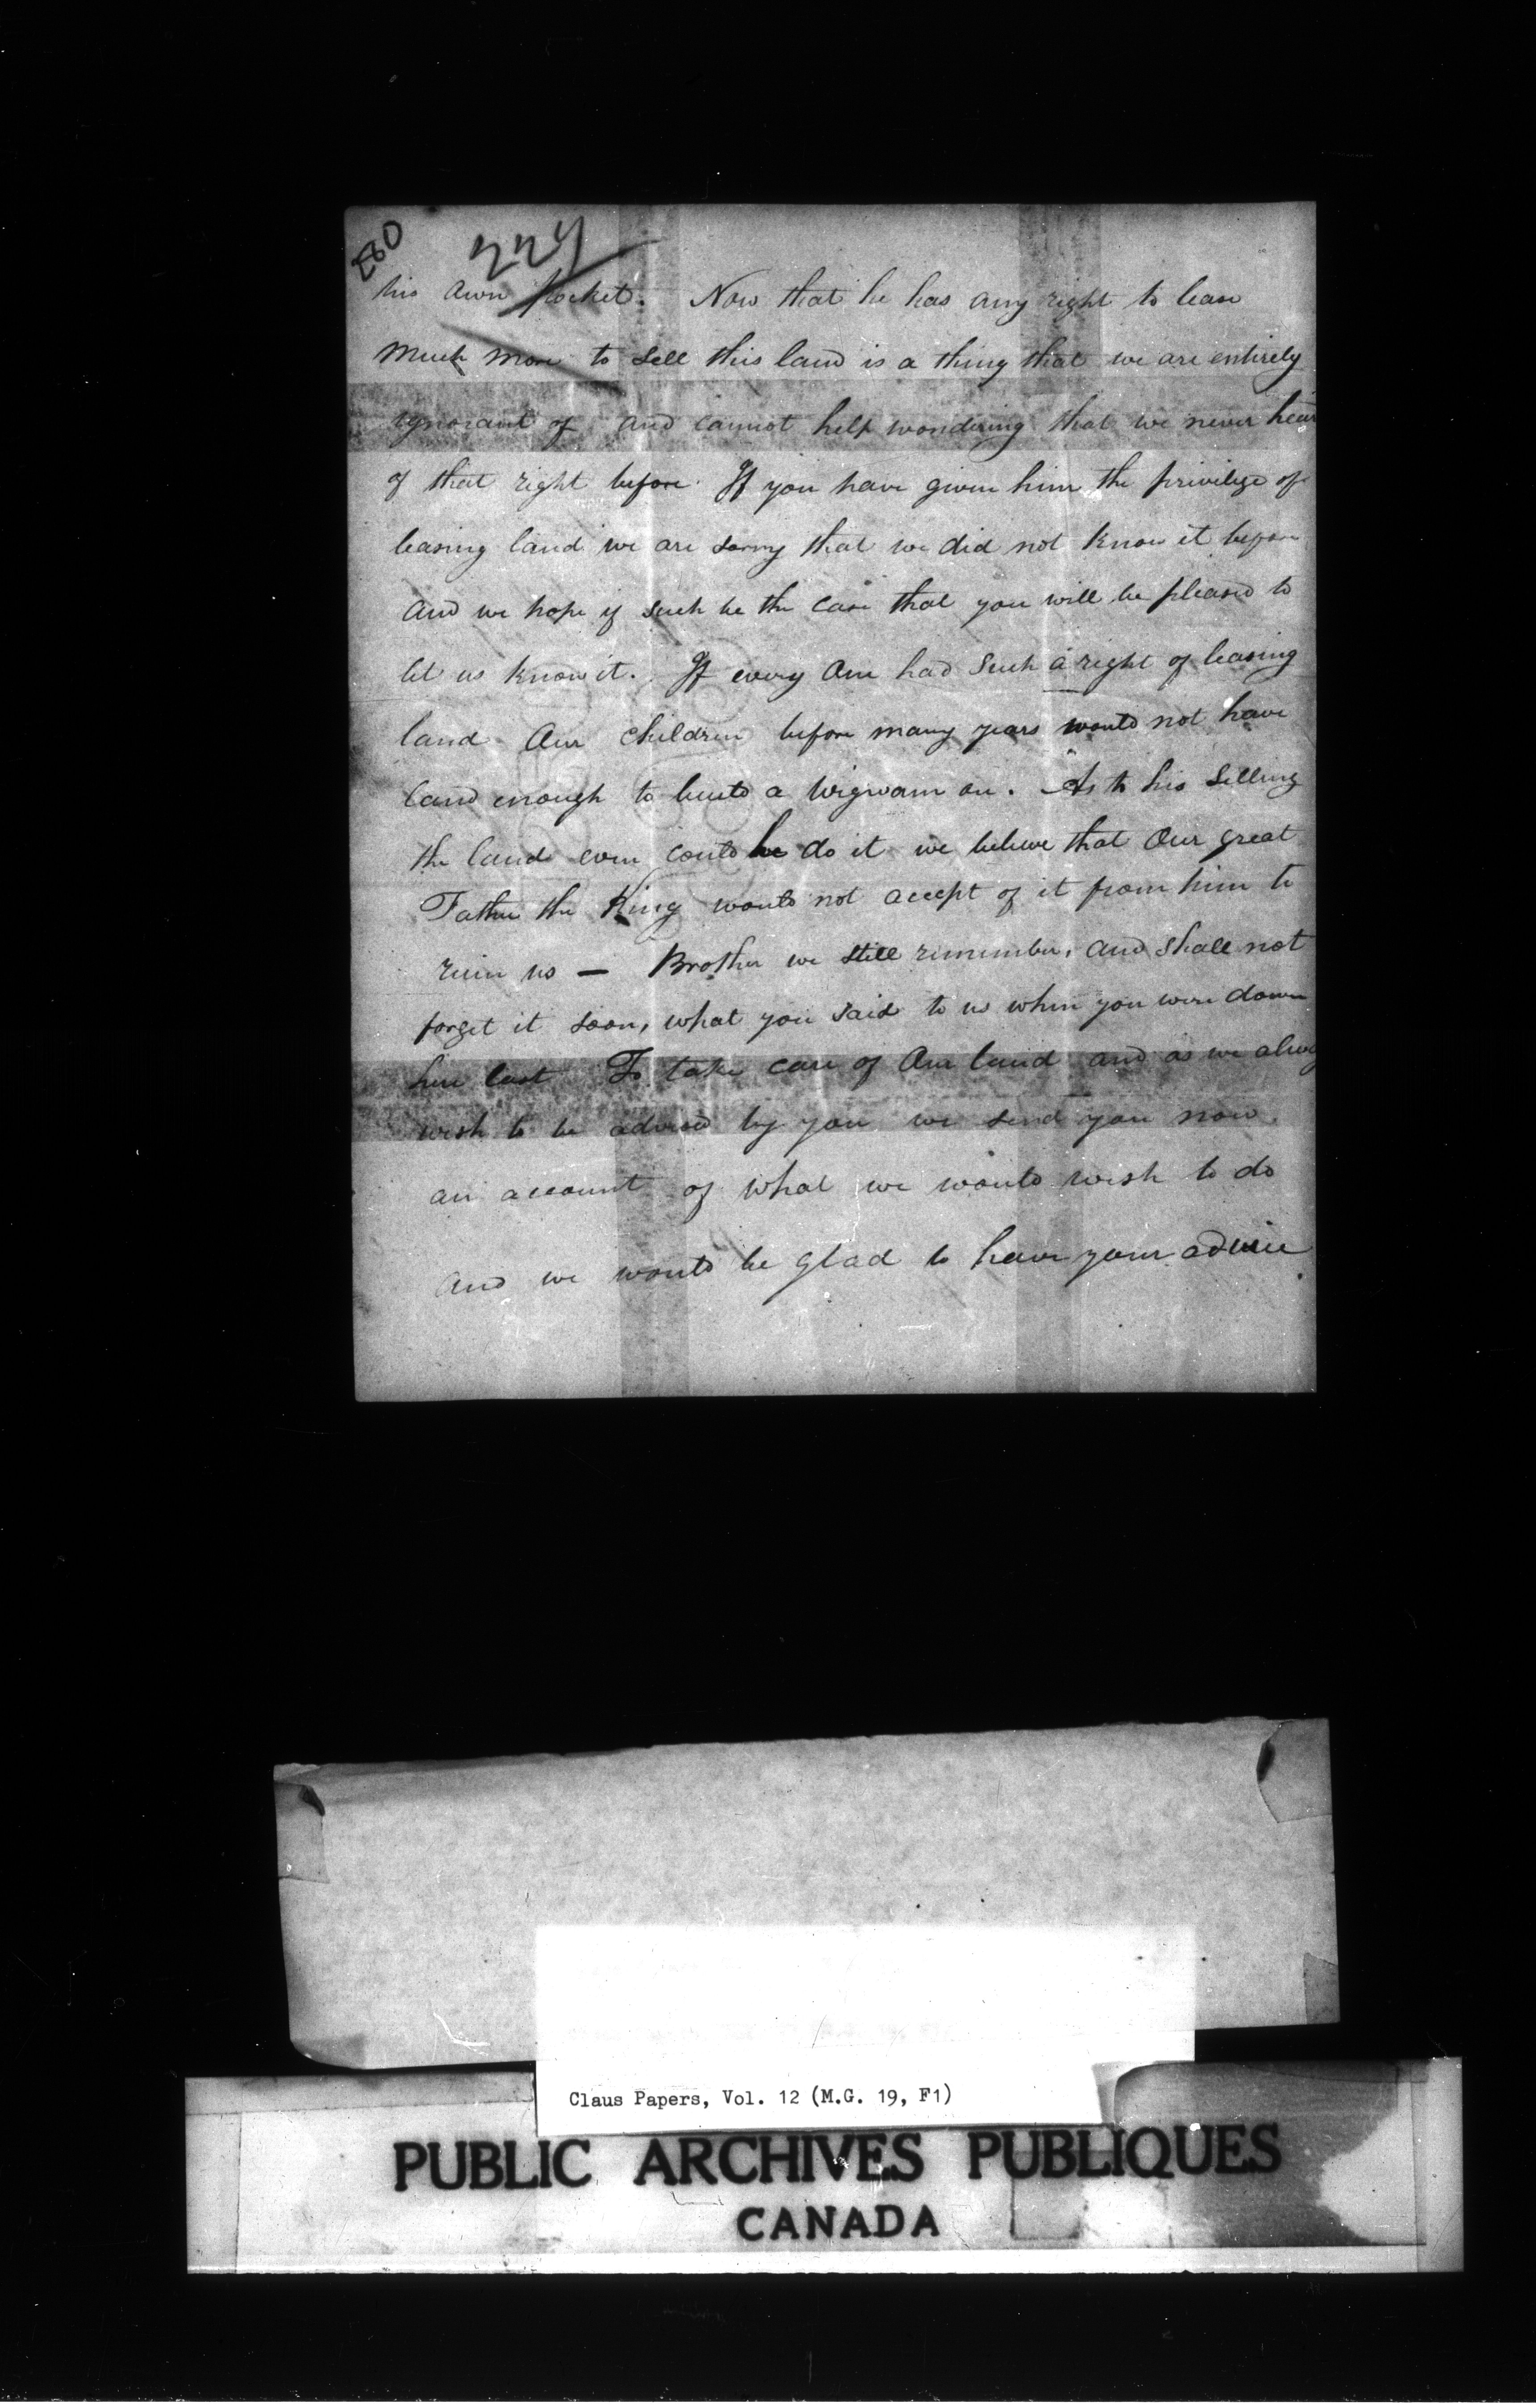 280
229
his own pocket. Now that he has any right to lease
much more to sell this land is a thing that we are entirely
ignorant of and cannot help wondering that we never hear
of that right before. If you have given him the privilege of
leasing land we are sorry that we did not know it before
and we hope if such be the case that you will be pleased to
let us know it. If every one had such a right of leasing
land our children before many years would not have
land enough to build a wigwam on. As to his selling
the land even could he do it we believe that our great
Father the King would not accept of it from him to
ruin us — Brother we still remember, and shall not
forget it soon, what you said to us when you were down
here last To take care of our land and as we alway
wish to be advised by you we send you now
an account of what we would wish to do
and we would be glad to have your advice
Claus Papers, Vol. 12 (M.G. 19, F1)
PUBLIC ARCHIVES PUBLIQUES
CANADA